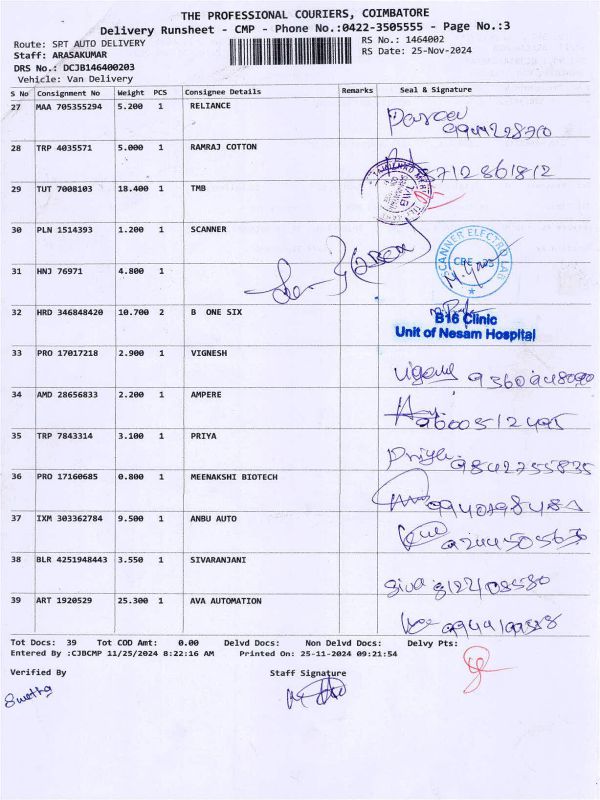 THE PROFESSIONAL COURIERS, COIMBATORE
Delivery Runsheet - CMP - Phone No.:0422-3505555 - Page No.:3
Route: SPT AUTO DELIVERY
Staff: ARASAKUMAR
DRS No.: DCJB146400203
Vehicle: Van Delivery
RS No.: 1464002
RS Date: 25-Nov-2024
S No Consignment No Weight PCS Consignee Details Remarks Seal & Signature
27 MAA 705355294 5.200 1 RELIANCE
28 TRP 4035571 5.000 1 RAMRAJ COTTON
29 TUT 7008103 18.400 1 TMB
30 PLN 1514393 1.200 1 SCANNER
SCANNER ELECTRO LAB
31 HNJ 76971 4.800 1
32 HRD 346848420 10.700 2 B ONE SIX
B16 Clinic
Unit of Nesam Hospital
33 PRO 17017218 2.900 1 VIGNESH
34 AMD 28656833 2.200 1 AMPERE
35 TRP 7843314 3.100 1 PRIYA Priya 9842755835
36 PRO 17160685 0.800 1 MEENAKSHI BIOTECH
37 IXM 303362784 9.500 1 ANBU AUTO
38 BLR 4251948443 3.550 1 SIVARANJANI Siva
39 ART 1920529 25.300 1 AVA AUTOMATION
Tot Docs: 39 Tot COD Amt: 0.00 Delvd Docs: Non Delvd Docs: Delvy Pts:
Entered By :CJBCMP 11/25/2024 8:22:16 AM Printed On: 25-11-2024 09:21:54
Verified By Staff Signature